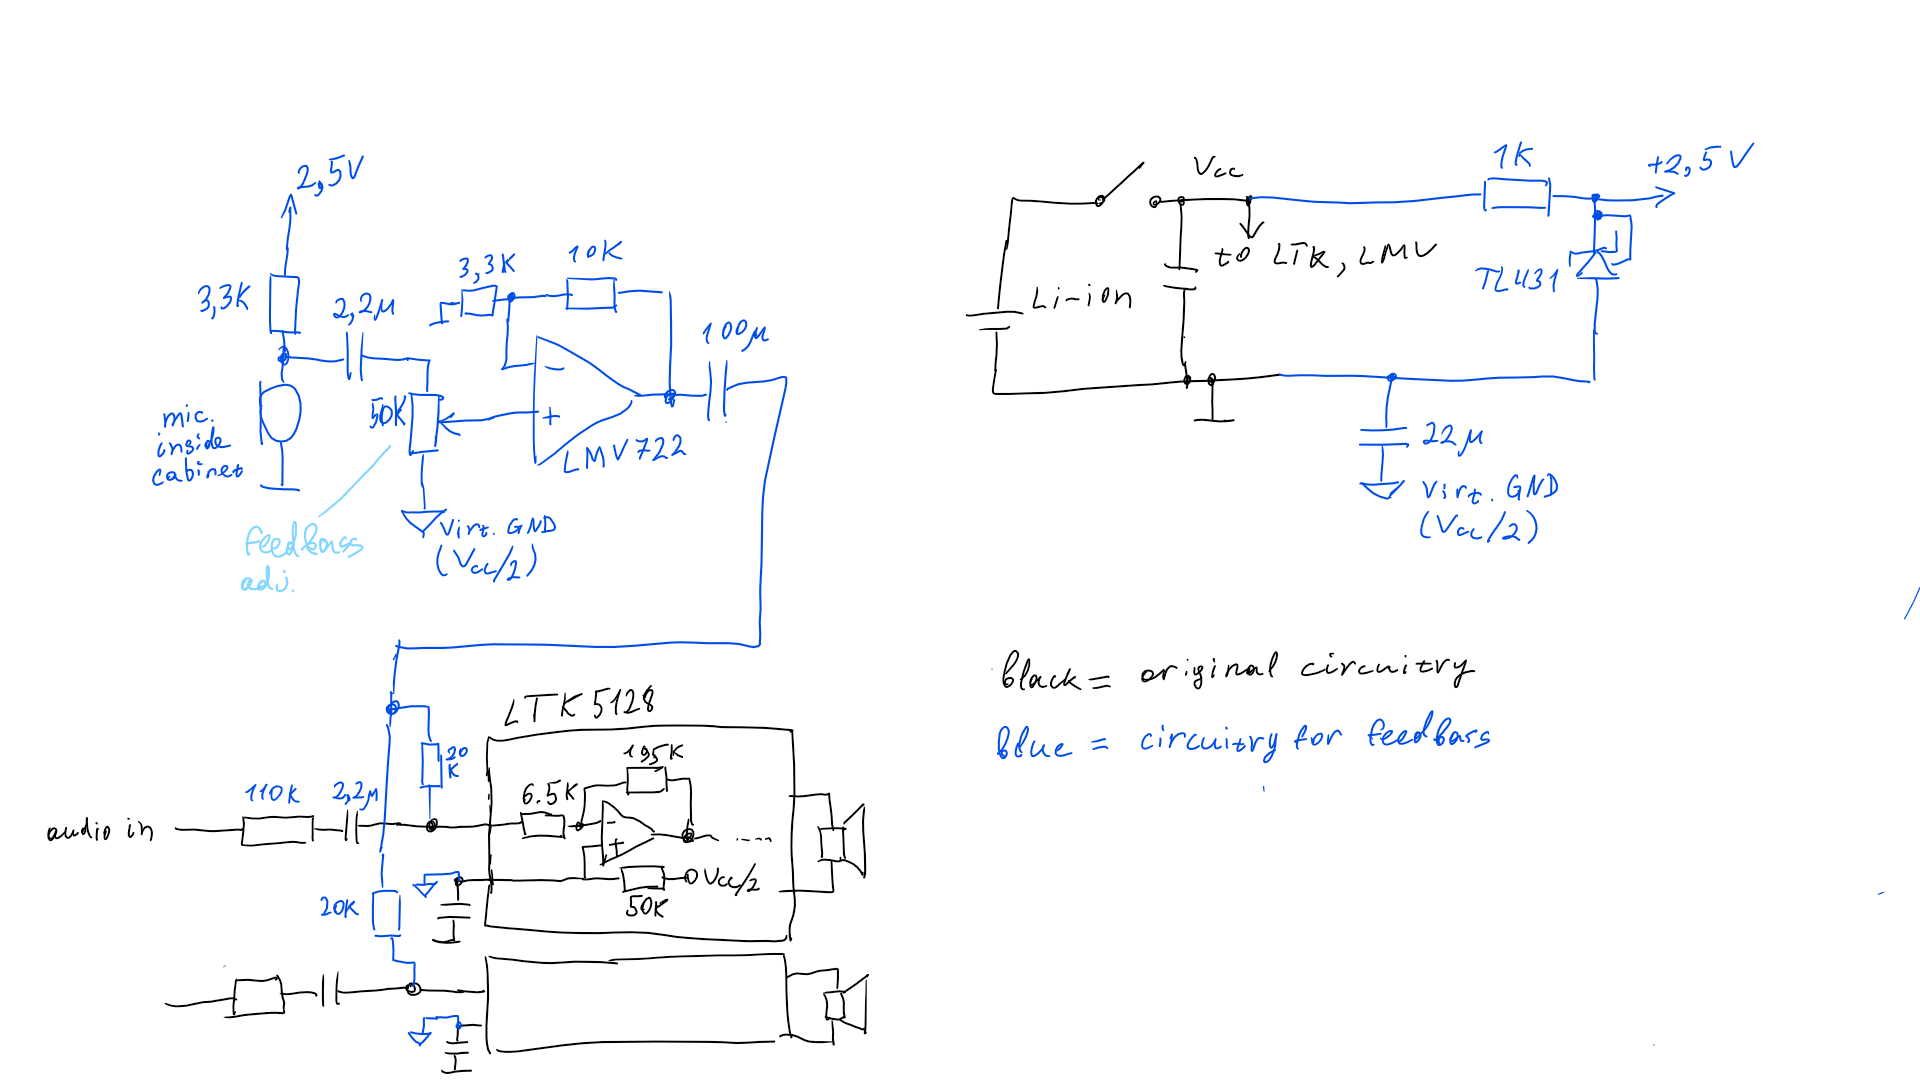 2,5V
3,3K
2,2µ
3,3K
10K
100µ
50K
mic.
inside
cabinet
LMV722
Virt. GND
(Vcc/2)
feedbass
adj.
Vcc
1K
+2,5V
to LTK, LMV
Li-ion
TL431
22µ
Virt. GND
(Vcc/2)
black = original circuitry
blue = circuitry for feedbass
LTK5128
20
K
195K
6.5K
110K
2,2µ
audio in
Vcc/2
50K
20K